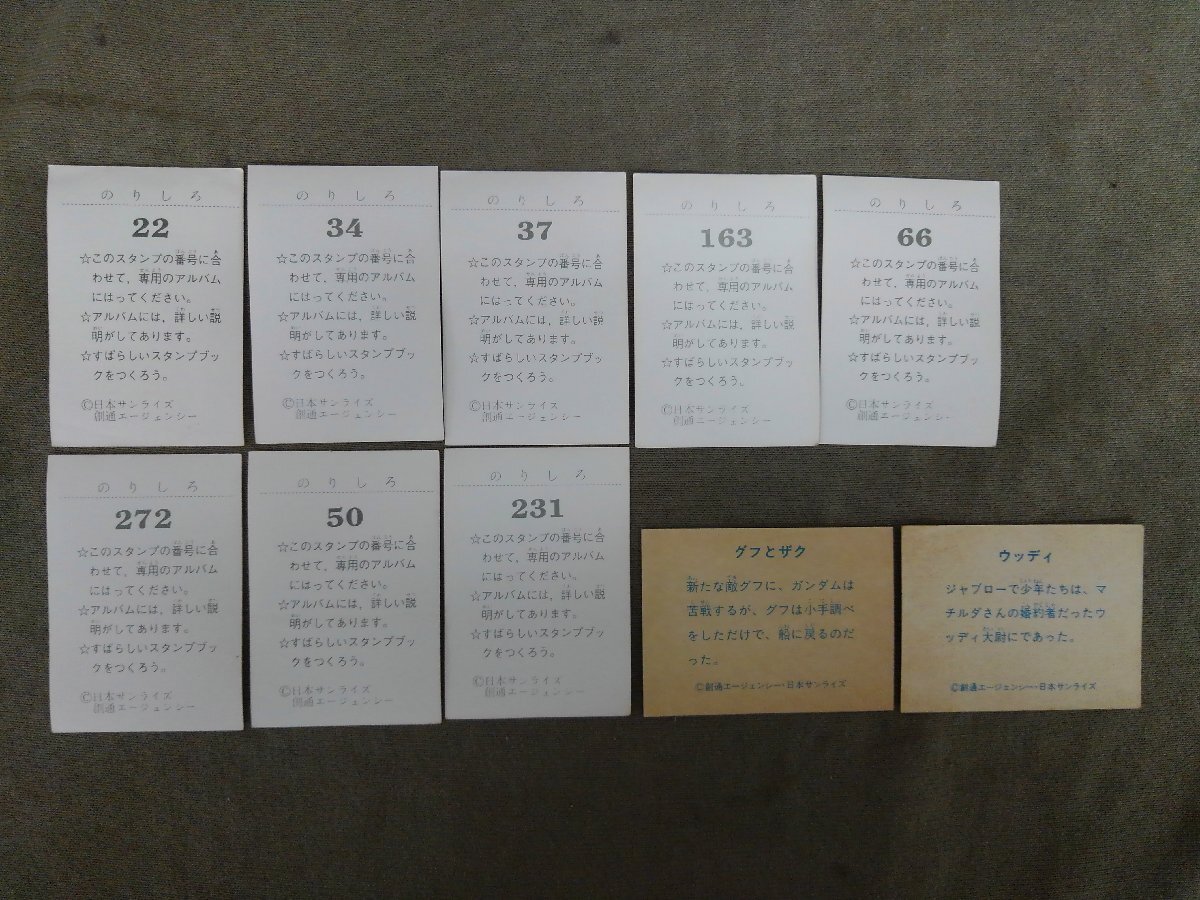 のりしろ
22
☆このスタンプの番号に合
わせて、専用のアルバム
にはってください。
☆アルバムには、詳しい説
明がしてあります。
☆すばらしいスタンプブッ
クをつくろう。
©日本サンライズ
創通エージェンシー
のりしろ
34
☆このスタンプの番号に合
わせて、専用のアルバム
にはってください。
☆アルバムには、詳しい説
明がしてあります。
☆すばらしいスタンプブッ
クをつくろう。
©日本サンライズ
創通エージェンシー
のりしろ
37
☆このスタンプの番号に合
わせて、専用のアルバム
にはってください。
☆アルバムには、詳しい説
明がしてあります。
☆すばらしいスタンプブッ
クをつくろう。
©日本サンライズ
創通エージェンシー
のりしろ
163
☆このスタンプの番号に合
わせて、専用のアルバム
にはってください。
☆アルバムには、詳しい説
明がしてあります。
☆すばらしいスタンプブッ
クをつくろう。
©日本サンライズ
創通エージェンシー
のりしろ
66
☆このスタンプの番号に合
わせて、専用のアルバム
にはってください。
☆アルバムには、詳しい説
明がしてあります。
☆すばらしいスタンプブッ
クをつくろう。
©日本サンライズ
創通エージェンシー
のりしろ
272
☆このスタンプの番号に合
わせて、専用のアルバム
にはってください。
☆アルバムには、詳しい説
明がしてあります。
☆すばらしいスタンプブッ
クをつくろう。
©日本サンライズ
創通エージェンシー
のりしろ
50
☆このスタンプの番号に合
わせて、専用のアルバム
にはってください。
☆アルバムには、詳しい説
明がしてあります。
☆すばらしいスタンプブッ
クをつくろう。
©日本サンライズ
創通エージェンシー
のりしろ
231
☆このスタンプの番号に合
わせて、専用のアルバム
にはってください。
☆アルバムには、詳しい説
明がしてあります。
☆すばらしいスタンプブッ
クをつくろう。
©日本サンライズ
創通エージェンシー
グフとザク
新たな敵グフに、ガンダムは
苦戦するが、グフは小手調べ
をしただけで、船に戻るのだ
った。
©創通エージェンシー・日本サンライズ
ウッディ
ジャブローで少年たちは、マ
チルダさんの婚約者だったウ
ッディ大尉にであった。
©創通エージェンシー・日本サンライズ